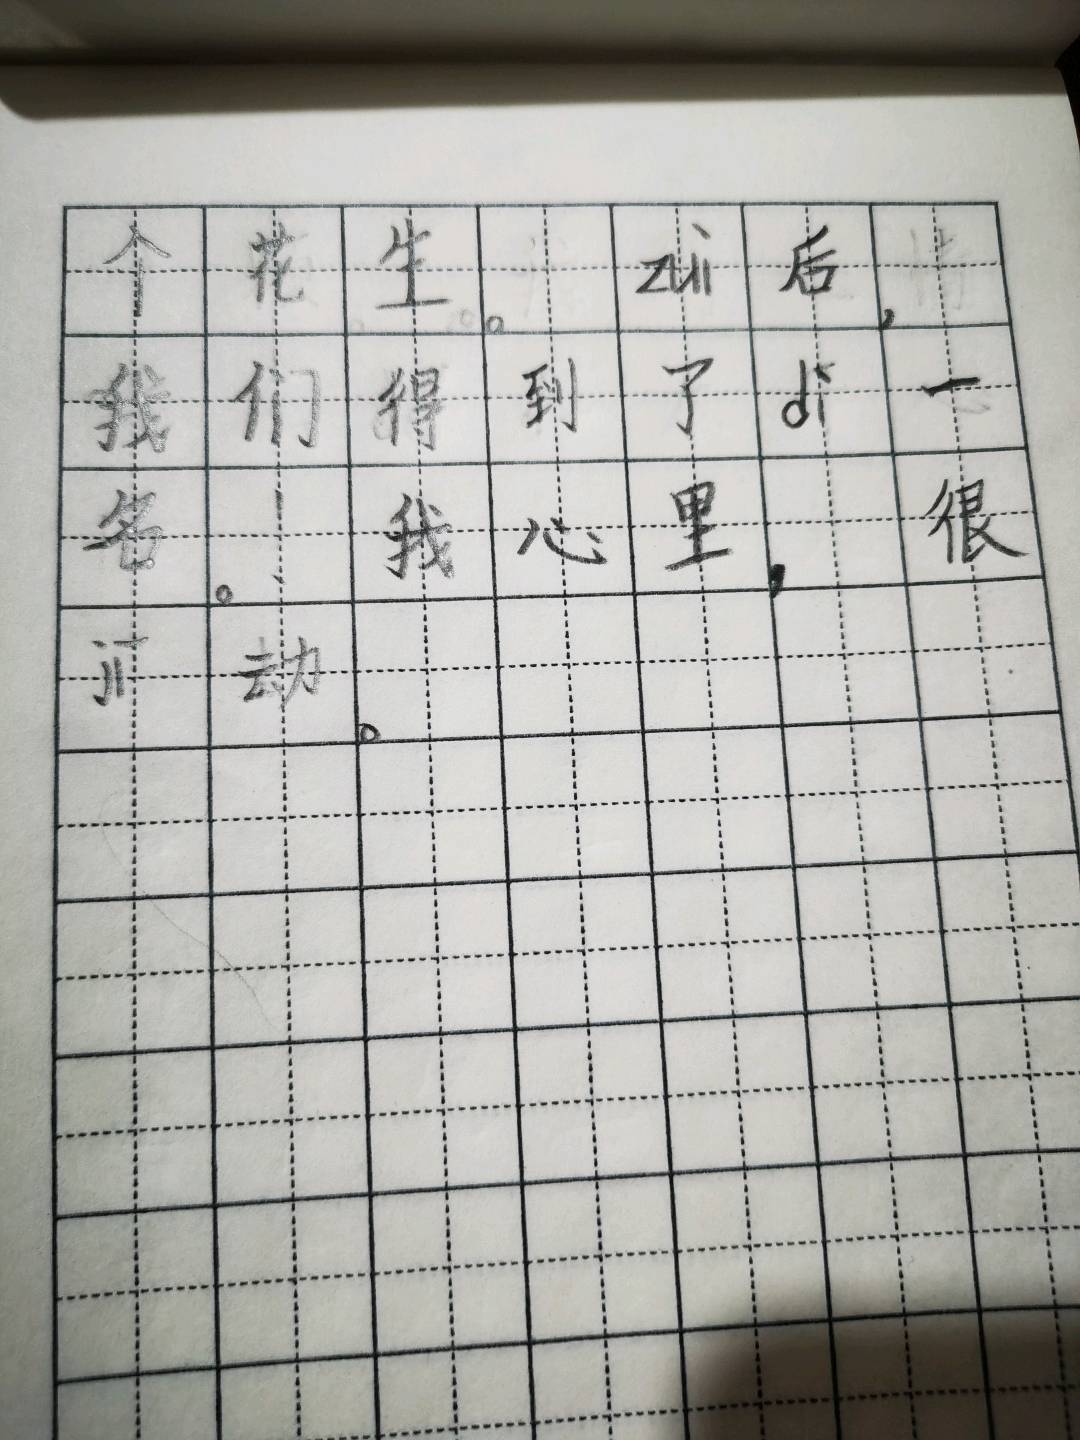 个花生。zuì后，
我们得到了dì一
名。！我心里，很
jī动。